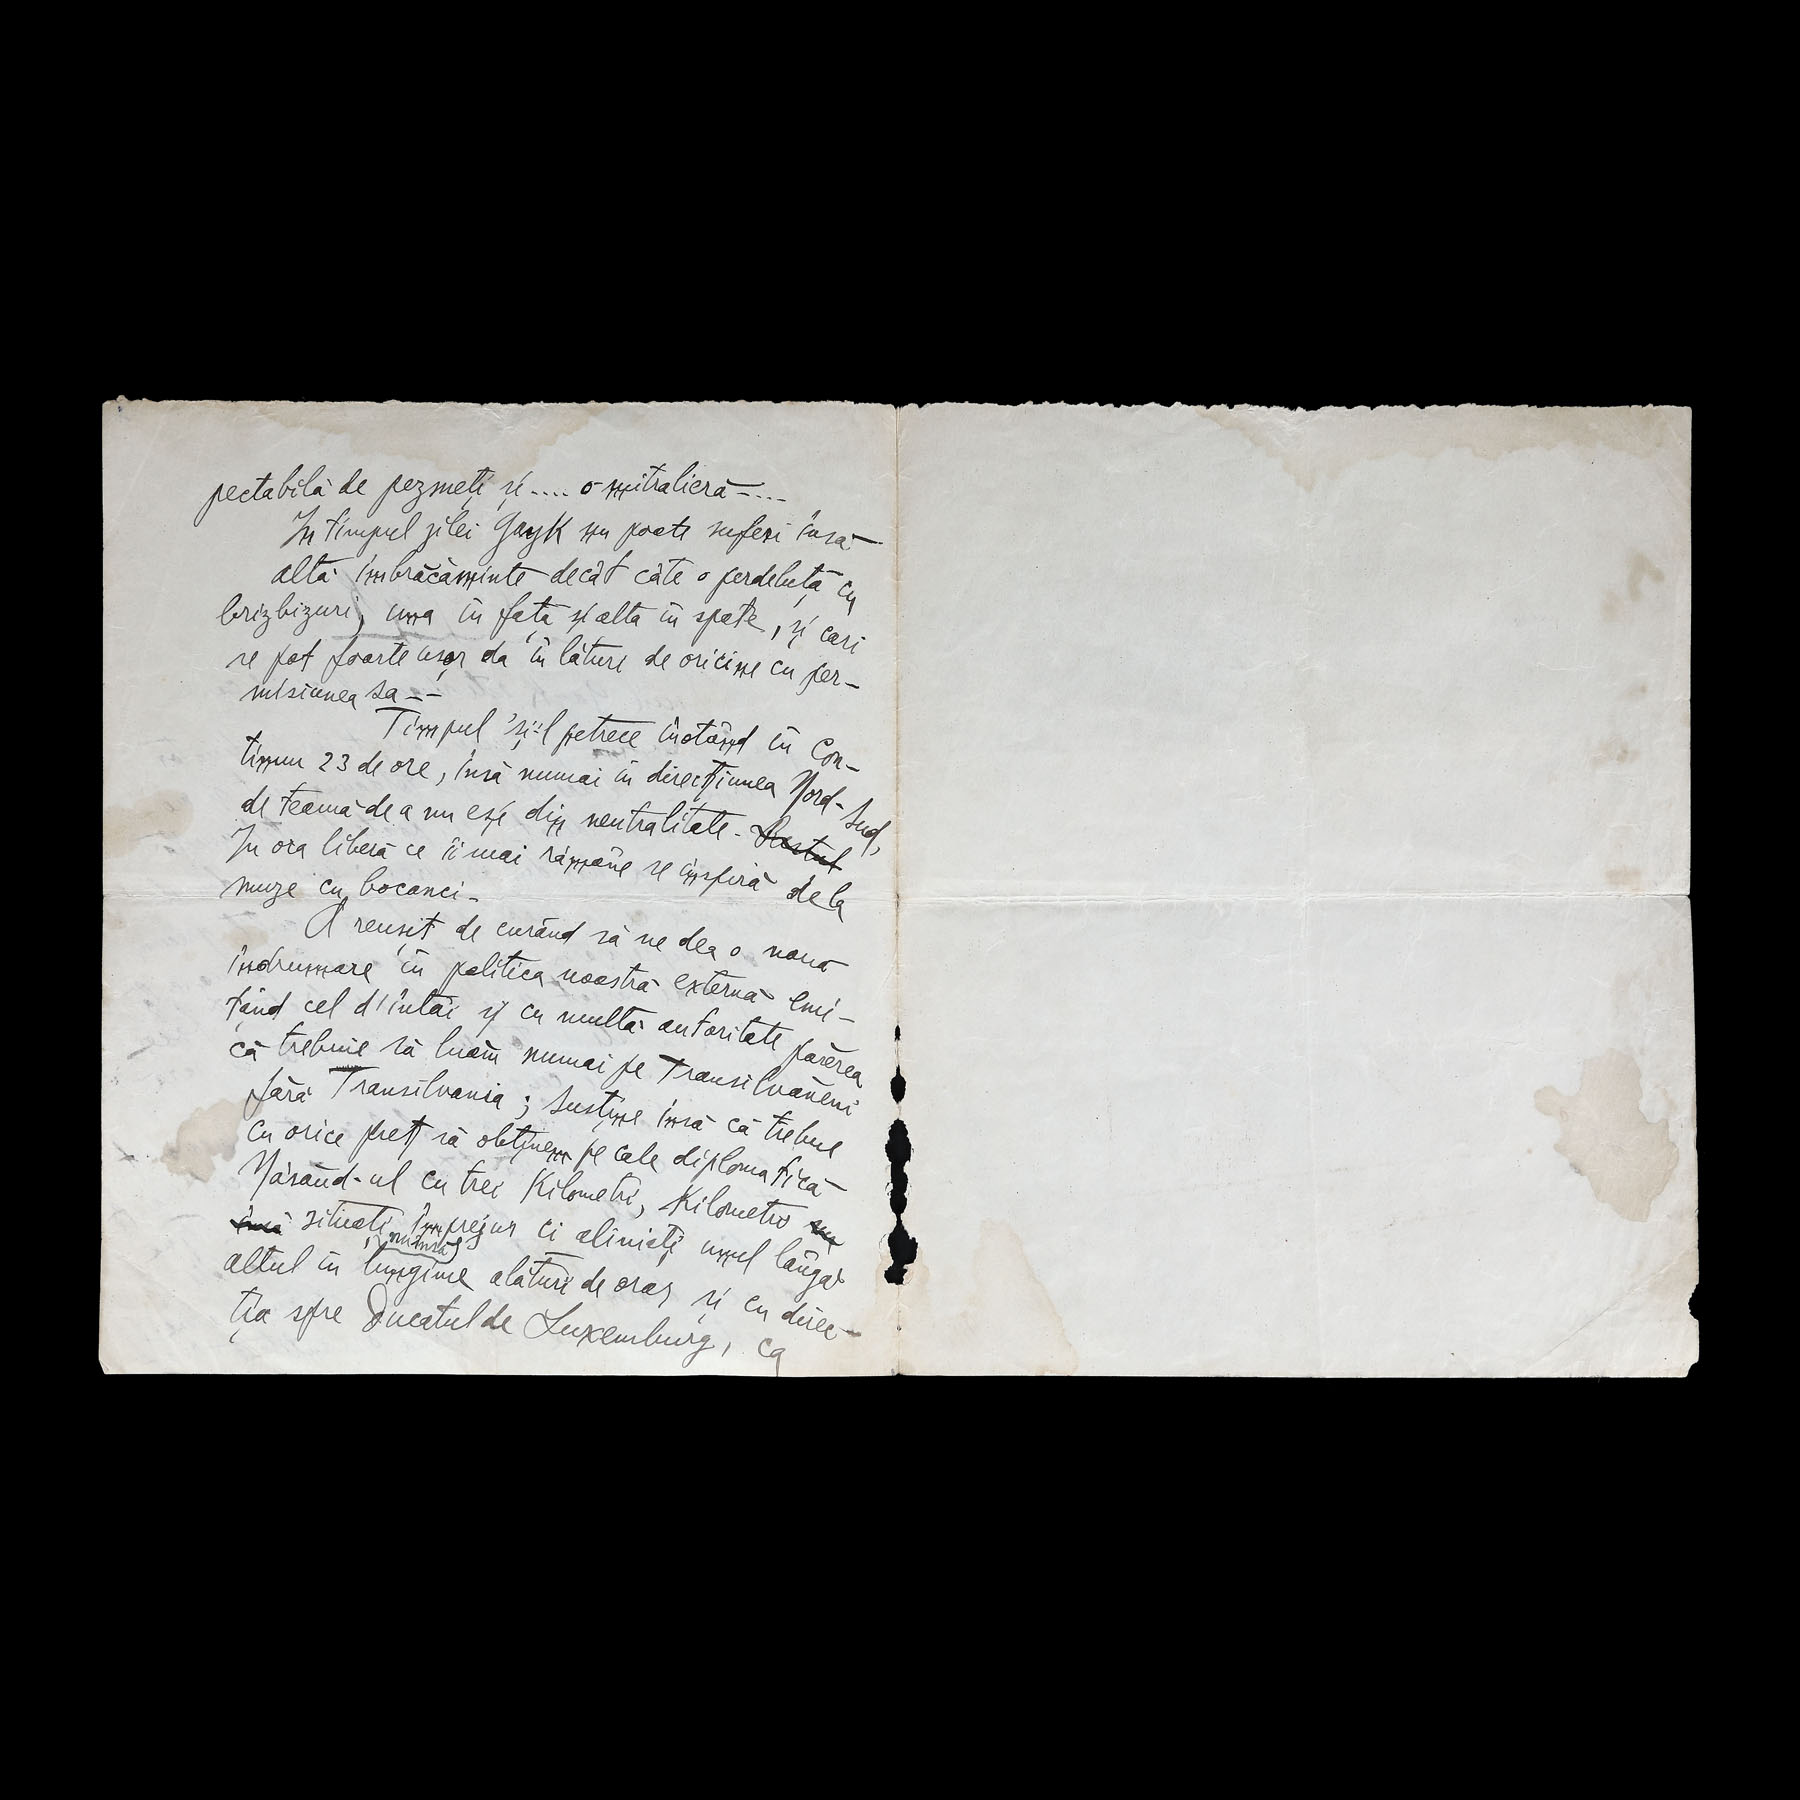 pectabilă de pezmeți și .... o mitralieră - ...
In timpul zilei Gayk nu poate suferi însă
altă îmbrăcăminte decât câte o perdeluță cu
brizbizuri, una în față și alta în spate, și cari
se pot foarte ușor da în lături de oricine cu per-
misiunea sa - -
Timpul 'și-l petrece înotând în con-
tinuu 23 de ore, însă numai în direcțiunea Nord-Sud,
de teamă de a nu eși din neutralitate. Restul
In ora liberă ce îi mai rămâne se inspiră dela
muze cu bocanci -
A reușit de curând să ne dea o nouă
îndrumare în politica noastră externă emi-
țând cel d'întâi și cu multă autoritate părerea
că trebuie să luăm numai pe Transilvăneni
fără Transilvania; susține însă că trebue
cu orice preț să obținem pe cale diplomatică
Năsăud-ul cu trei Kilometri, Kilometri
însă situați împrejur ci aliniați unul lângă
altul în lungime alături de oraș și cu direc-
ția spre Ducatul de Luxemburg, ca